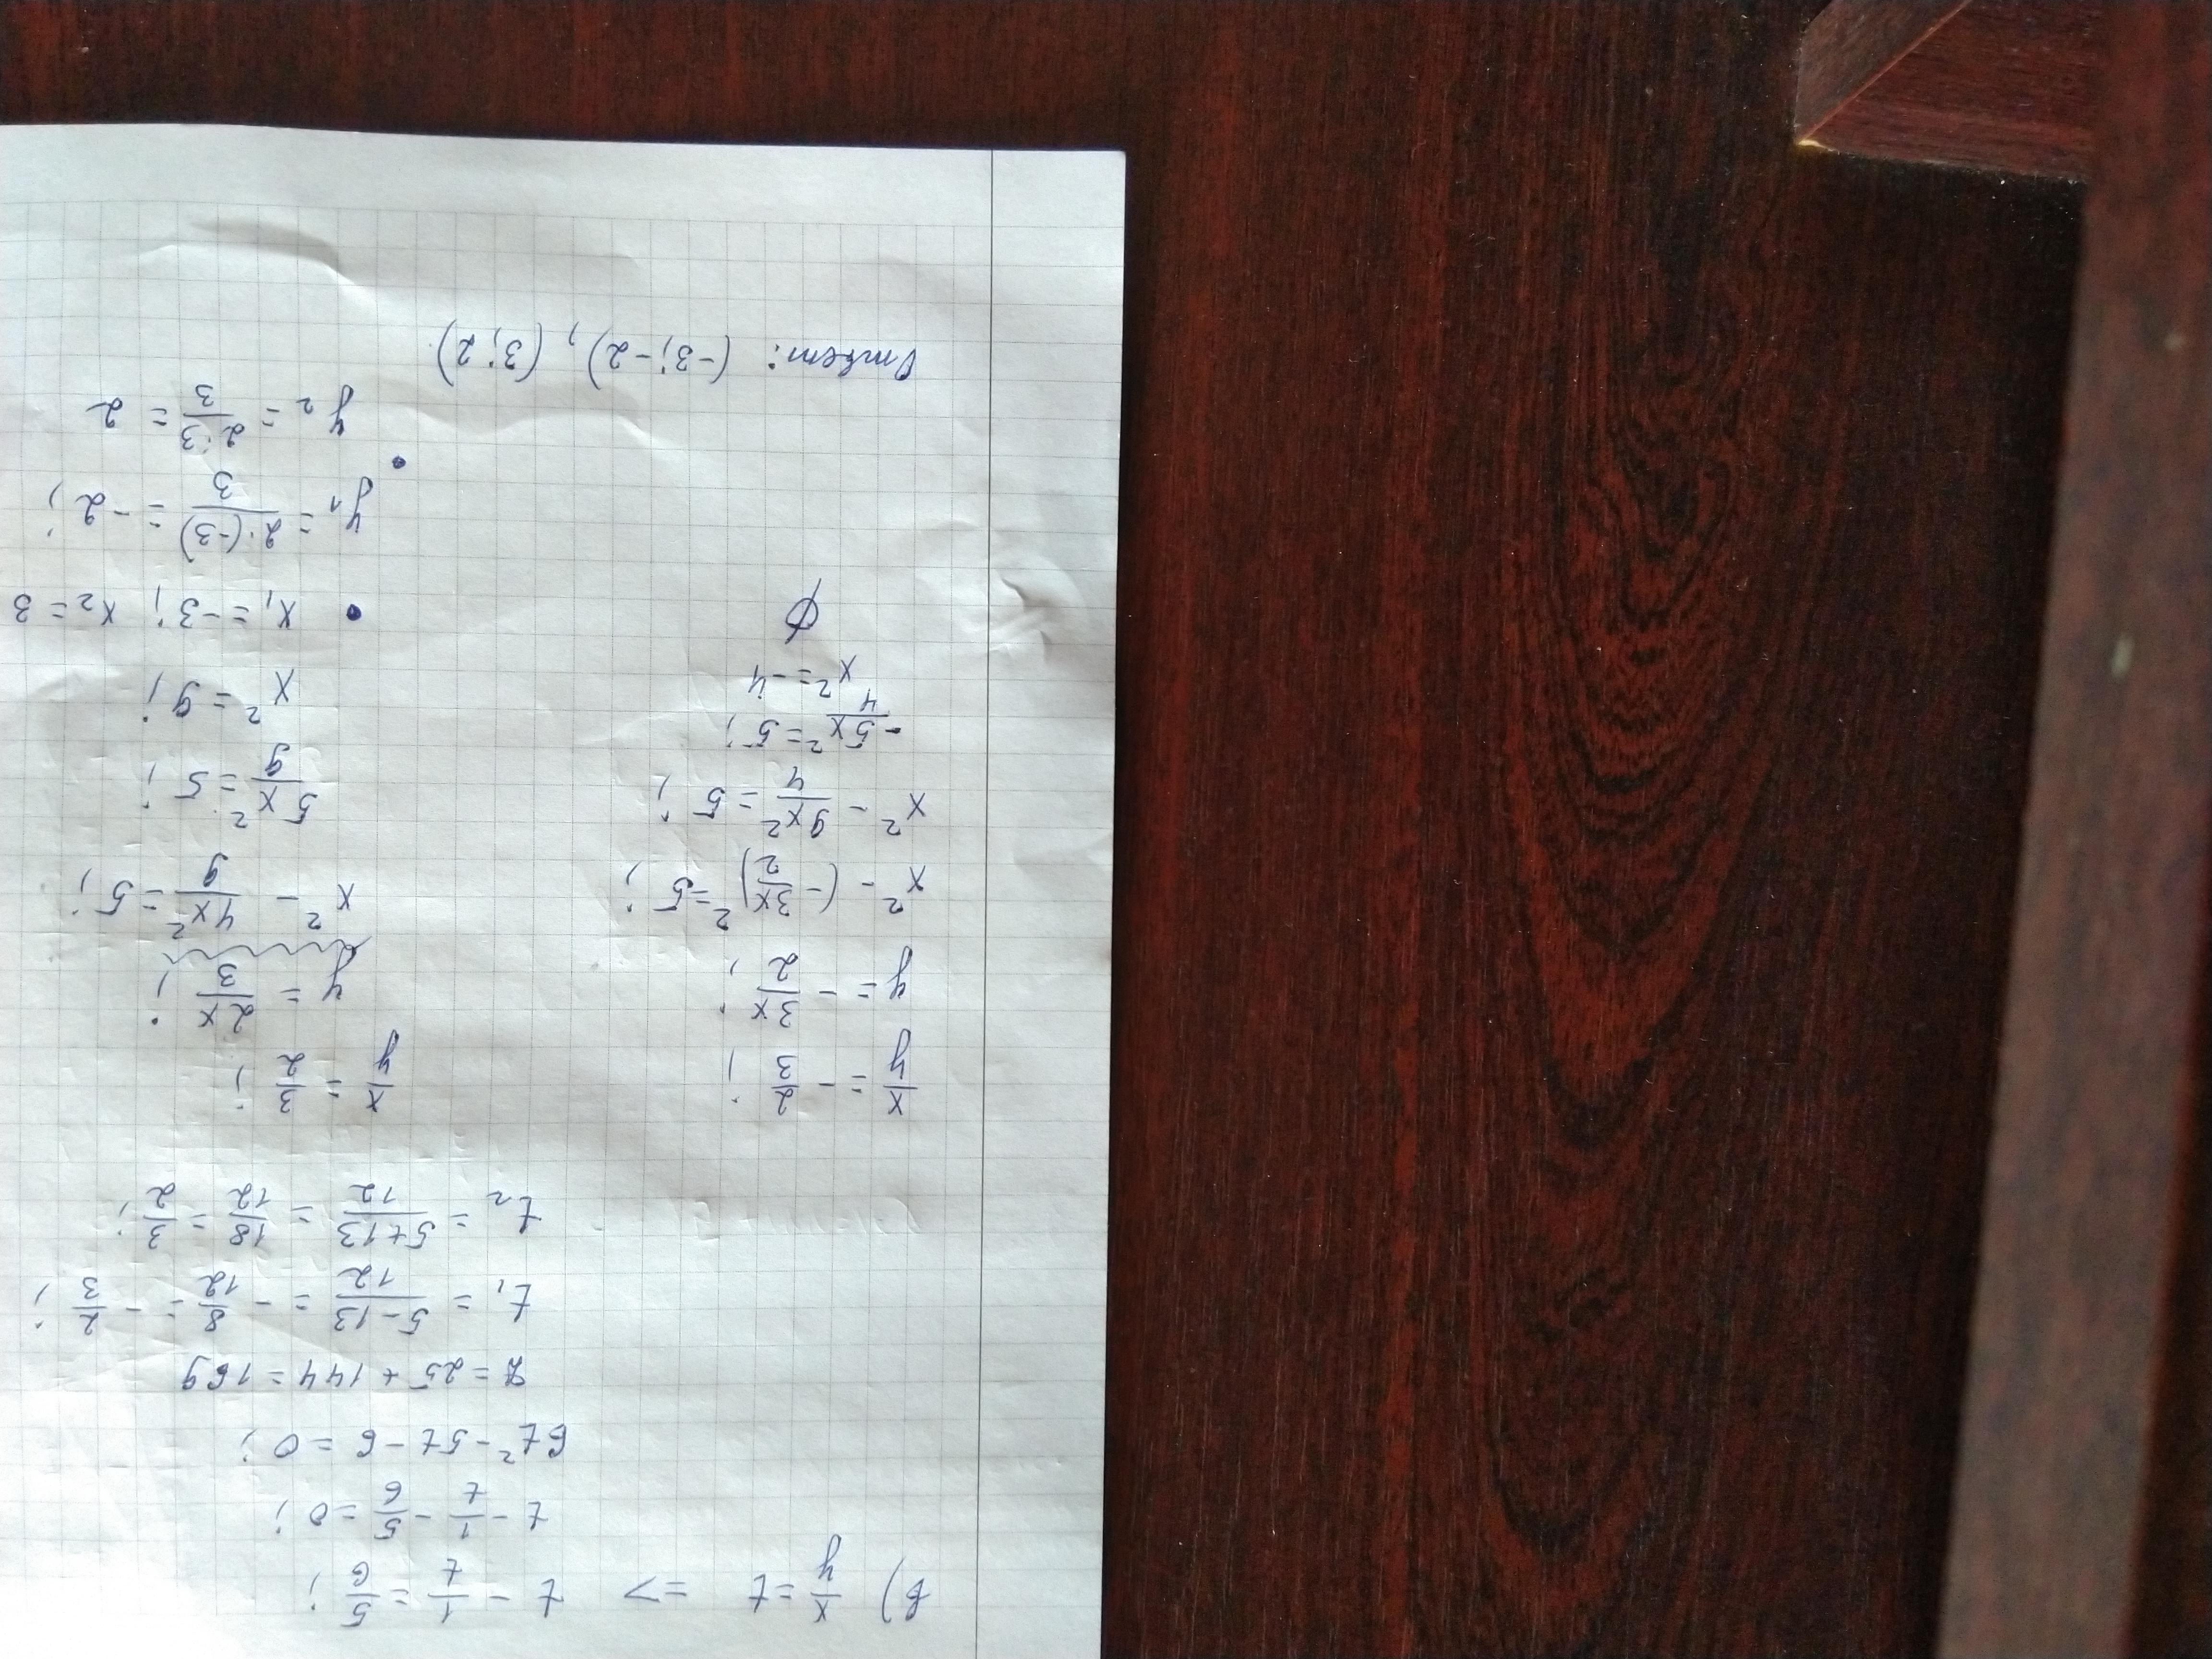 в) x/y = t => t - 1/t = 5/6;
t - 1/t - 5/6 = 0;
6t² - 5t - 6 = 0;
Д = 25 + 144 = 169
t₁ = (5-13)/12 = -8/12 = -2/3;
t₂ = (5+13)/12 = 18/12 = 3/2;
x/y = -2/3;
y = -3x/2;
x² - (-3x/2)² = 5;
x² - 9x²/4 = 5;
-5x²/4 = 5;
x² = -4
∅
x/y = 3/2;
y = 2x/3;
x² - 4x²/9 = 5;
5x²/9 = 5;
x² = 9;
x₁ = -3; x₂ = 3
y₁ = 2·(-3)/3 = -2;
y₂ = 2·3/3 = 2
Ответ: (-3; -2), (3; 2)